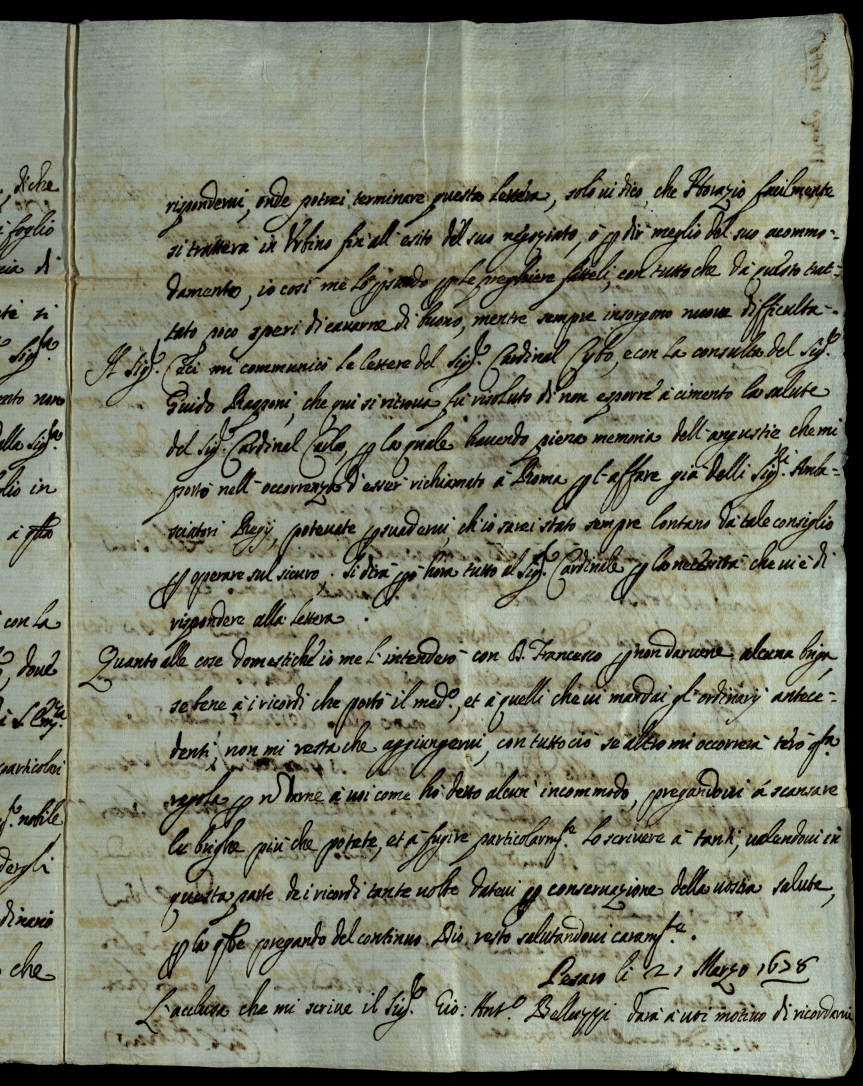 di che
foglio
di
si
Sig.re
non
alla Sig.ra
lio in
con la
dove
particolari
s.r nobile
dergli
dinario
che
rispondervi, onde potrei terminare questa lettera, solo vi dico, che Horazio facilmente
si tratterà in Urbino fin all'esito del suo negoziato, ò p dir meglio del suo acommo-
damento, io così me lo p le preghiere fatteli, con tutto che da questo trat-
tato, poco speri di cavarne di buono, mentre sempre insorgono nuove difficulta-
Il Sig.r Ceci mi communicò le lettere del Sig.r Cardinal Cybo, e con la consulta del Sig.r
Guido Rangoni, che qui si ritrova fù risoluto di non esporre à cimento la salute
del Sig.r Cardinal Carlo, p la quale havendo piena memoria dell'angustie che mi
portò nell'occorrenza d'esser richiamato à Roma p l'affare già delli Sig.ri Amba-
sciatori Regij, potevate psuadervi ch'io sarei stato sempre lontano da tale consiglio
p operare sul sicuro. Si dirà pò hora tutto al Sig.r Cardinale p la necessità che vi è di
rispondere alla lettera.
Quanto alle cose domestiche io me l'intenderò con D. Francesco p non darvene alcuna briga,
se bene à i ricordi che portò il med.o, et à quelli che vi mandai gl'ordinarij antece-
denti, non mi resta che aggiungervi, con tutto ciò se altro mi occorrerà terò qsta
regola p n darne à voi come hò detto alcun incommodo, pregandovi à scansare
le brighe più che potete, et à fugire particolarm.te lo scrivere à tanti, valendovi in
questa parte de i ricordi tante volte datevi p conservazione della vostra salute,
p la qle pregando del continuo Dio, resto salutandovi caram.te.
Pesaro li 21 Marzo 1678
L'acclusa che mi scrive il Sig.r Gio: Ant.o Belluzzi darà à voi motivo di ricordarvi